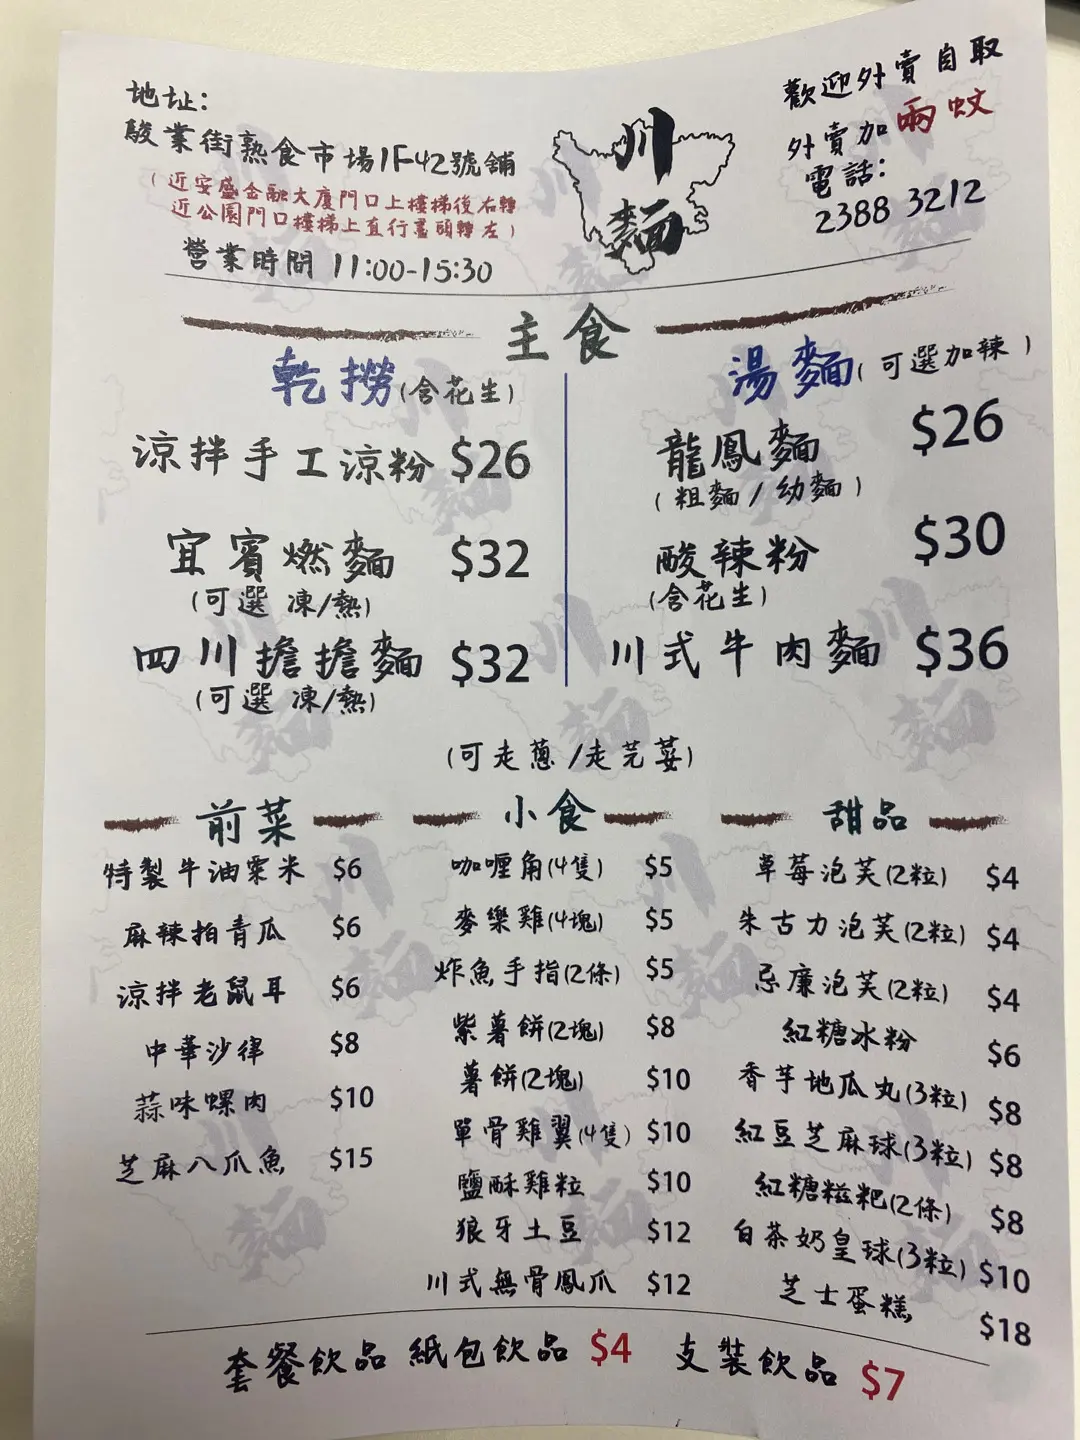 地址：
駿業街熟食市場1F42號舖
(近安盛金融大廈門口上樓梯後右轉
近公園門口樓梯上直行盡頭轉左)
營業時間 11:00-15:30
川
麵
歡迎外賣自取
外賣加兩蚊
電話：
2388 3212
主食
乾撈(含花生)
涼拌手工涼粉 $26
宜賓燃麵 $32
(可選 凍/熱)
四川擔擔麵 $32
(可選 凍/熱)
湯麵(可選加辣)
龍鳳麵 $26
(粗麵/幼麵)
酸辣粉 $30
(含花生)
川式牛肉麵 $36
(可走蔥/走芫荽)
前菜
特製牛油粟米 $6
麻辣拍青瓜 $6
涼拌老鼠耳 $6
中華沙律 $8
蒜味螺肉 $10
芝麻八爪魚 $15
小食
咖喱角(4隻) $5
麥樂雞(4塊) $5
炸魚手指(2條) $5
紫薯餅(2塊) $8
薯餅(2塊) $10
單骨雞翼(4隻) $10
鹽酥雞粒 $10
狼牙土豆 $12
川式無骨鳳爪 $12
甜品
草莓泡芙(2粒) $4
朱古力泡芙(2粒) $4
忌廉泡芙(2粒) $4
紅糖冰粉 $6
香芋地瓜丸(3粒) $8
紅豆芝麻球(3粒) $8
紅糖糍粑(2條) $8
白茶奶皇球(3粒) $10
芝士蛋糕 $18
套餐飲品 紙包飲品 $4 支裝飲品 $7